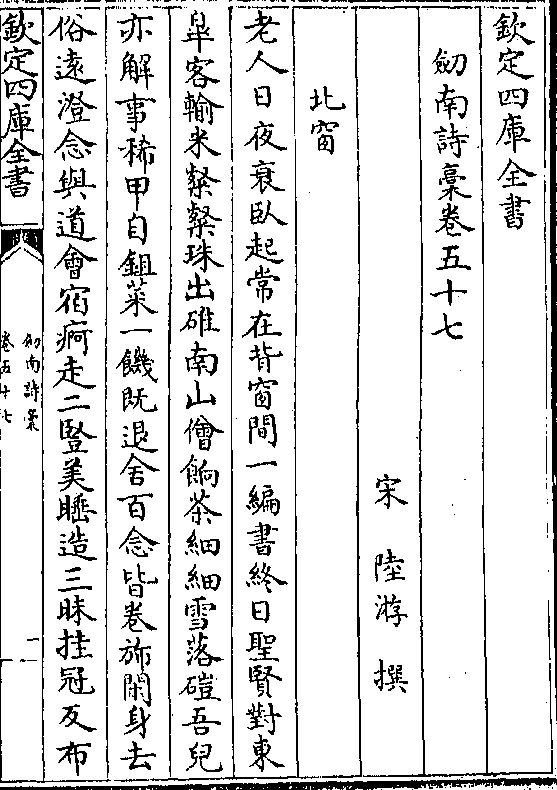 欽定四庫全書
劒南詩稾卷五十七
宋 陸游 撰
北窗
老人日夜衰臥起常在背窗間一編書終日聖賢對東
臯客輸米粲粲珠出碓南山僧餉茶細細雪落磑吾兒
亦解事稀甲自鉏菜一饑既退舍百念皆卷斾閑身去
俗遠澄念與道會宿痾走二豎美睡造三昧挂冠反布
欽定四庫全書
劒南詩稾
卷五十七
一